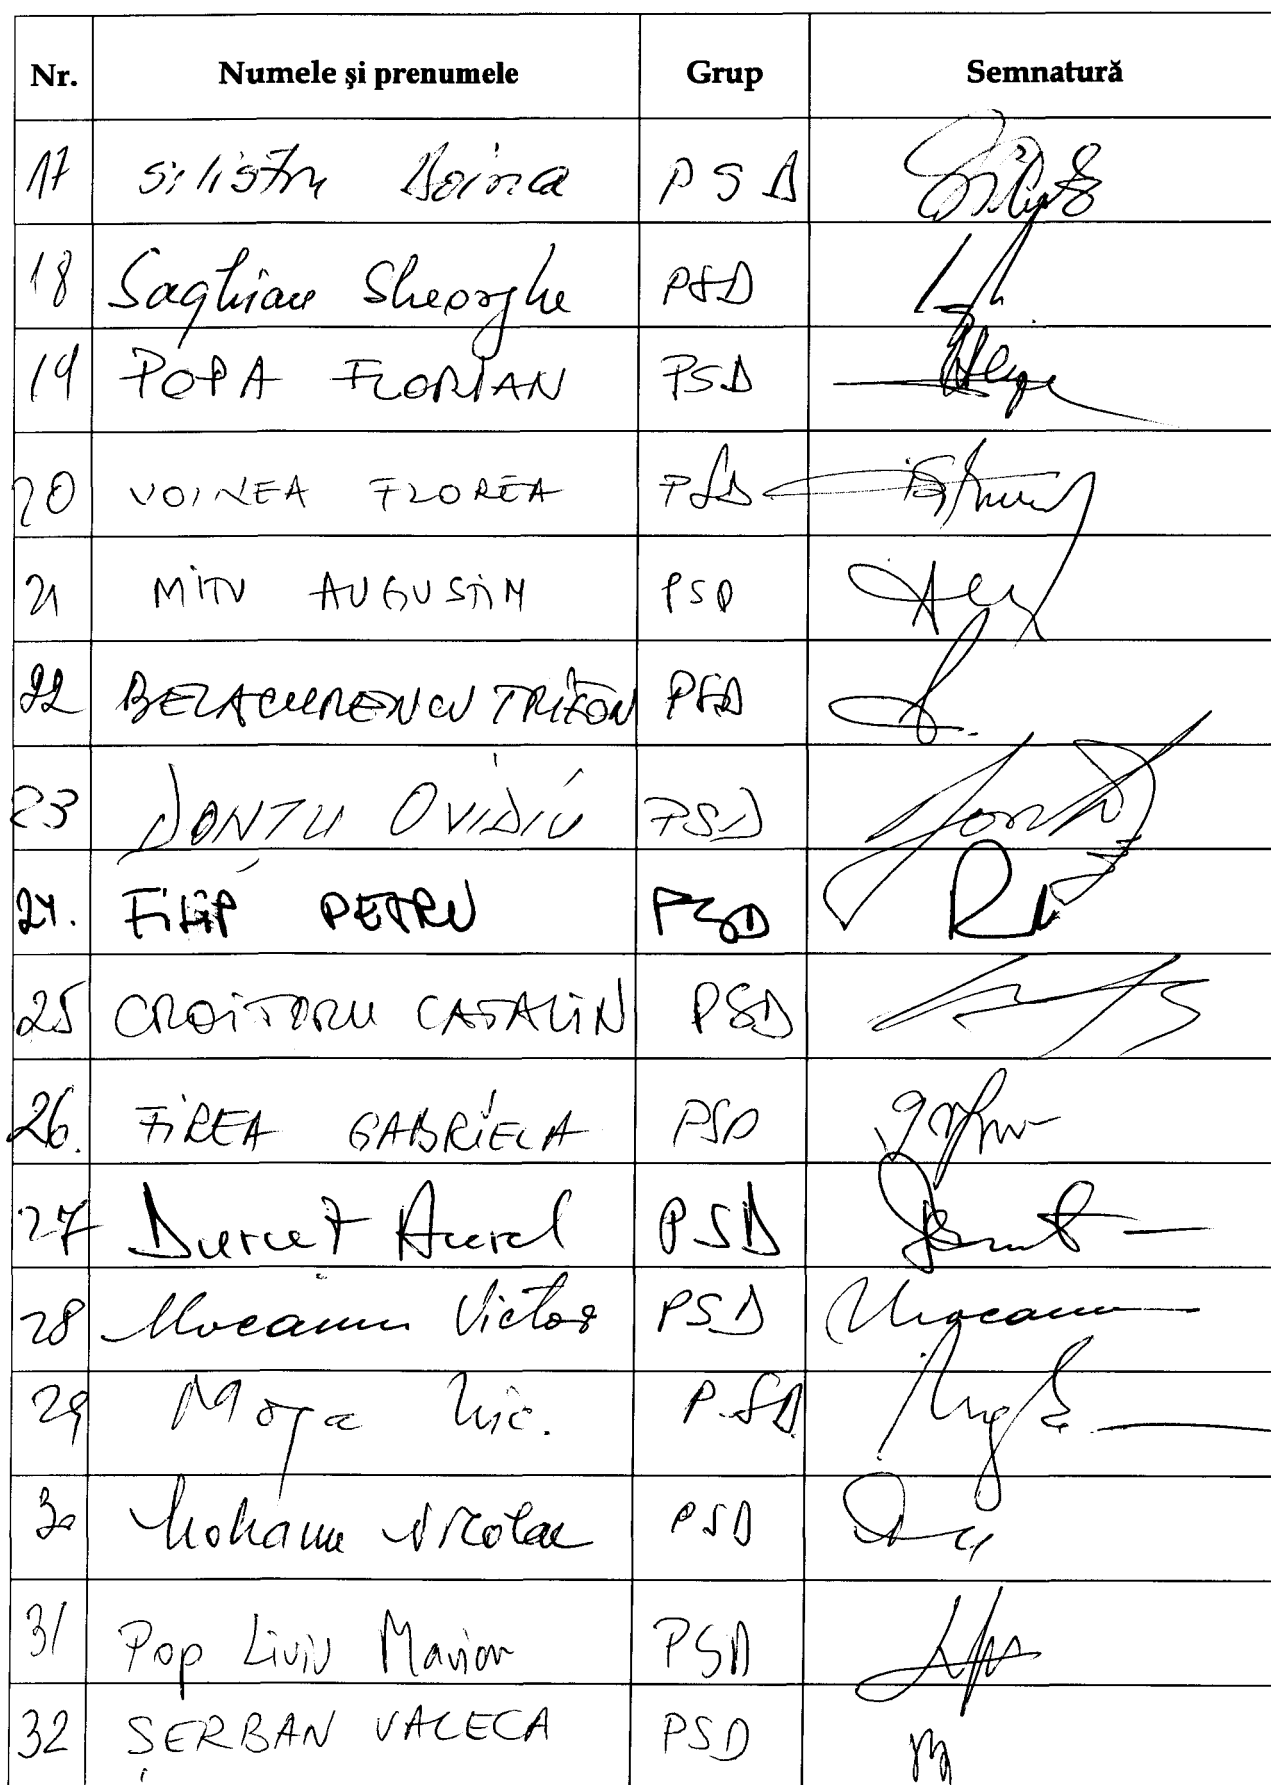 Nr. Numele și prenumele Grup Semnatură
17 Silistru Doina PSD
18 Saghian Gheorghe PSD
19 POPA FLORIAN PSD
20 VOINEA FLOREA PSD
21 MITU AUGUSTIN PSD
22 BELACURENCU TRIFON PSD
23 DONTU OVIDIU PSD
24. FILIP PETRU PSD
25 CROITORU CATALIN PSD
26. FIREA GABRIELA PSD
27 Duruet Aurel PSD
28 Mocanu Victor PSD
29 Moga Nic. PSD
30 Mohanu Nicolae PSD
31 Pop Liviu Marian PSD
32 ȘERBAN VALECA PSD